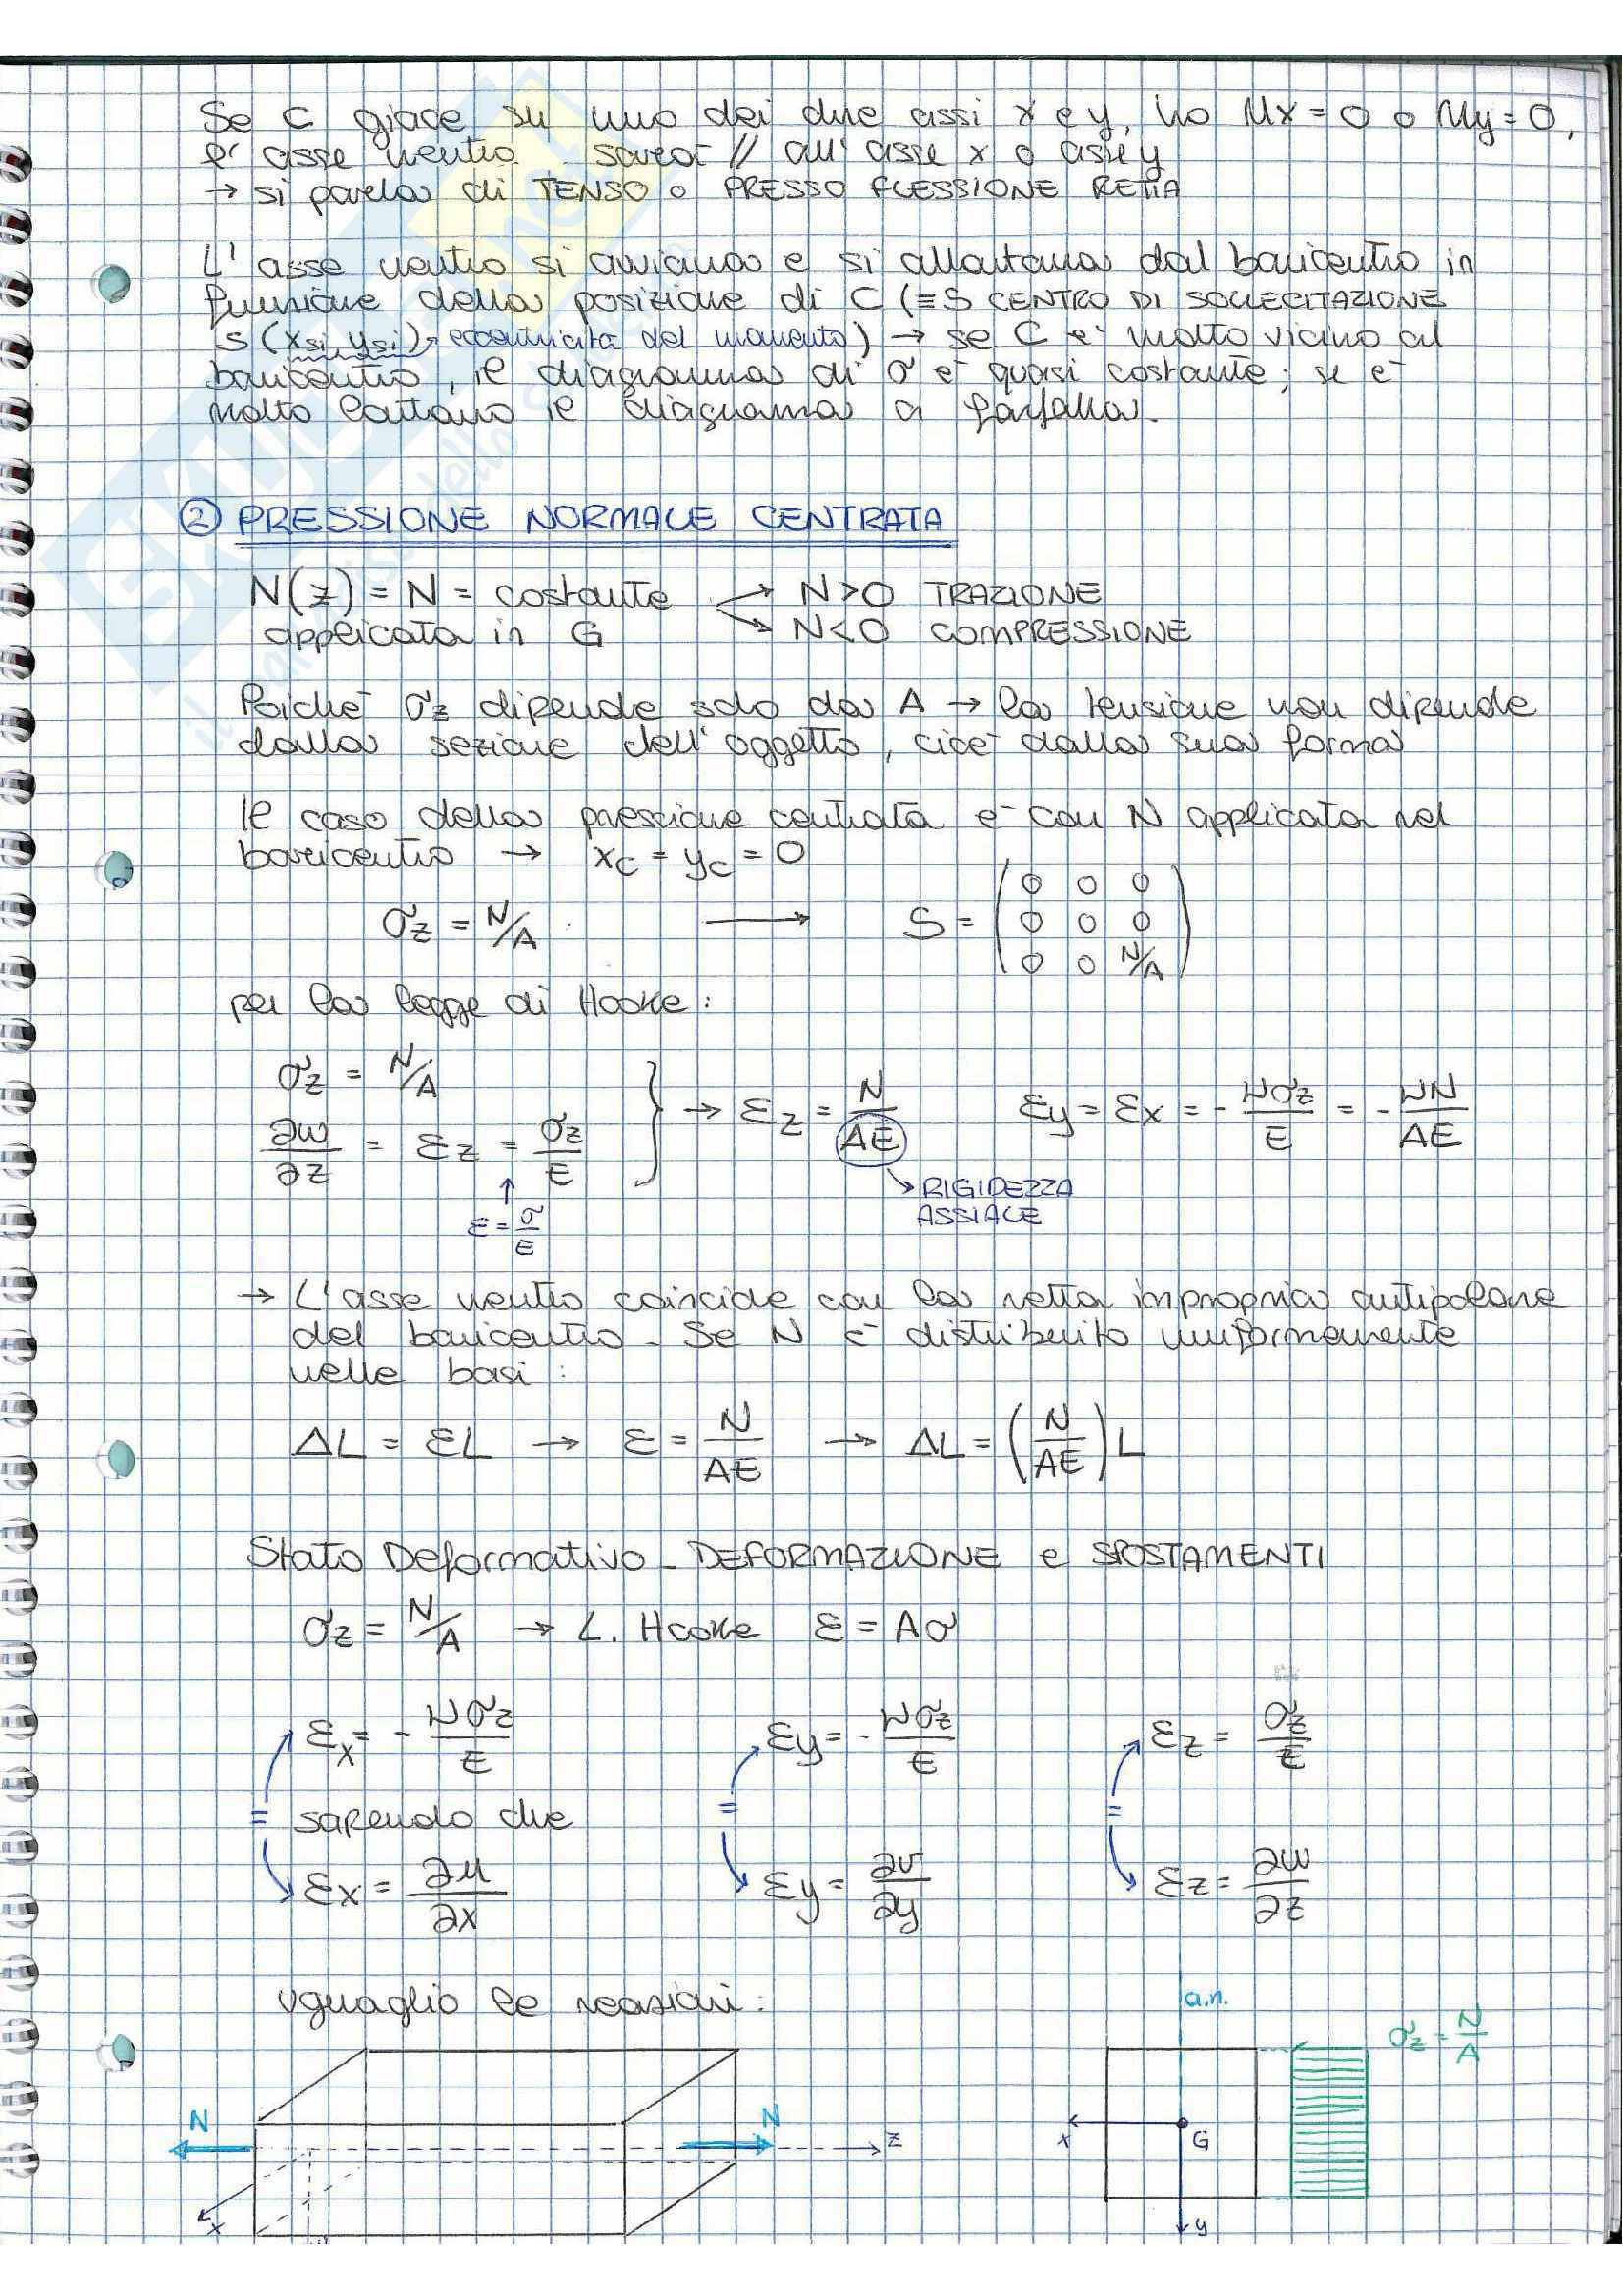 Se C giace su uno dei due assi x e y, ho Mx = 0 o My = 0,
l'asse neutro sarà // all'asse x o asse y
→ si parla di TENSO o PRESSO FLESSIONE RETTA
L'asse neutro si avvicina e si allontana dal baricentro in
funzione della posizione di C (≡ S CENTRO DI SOLLECITAZIONE
S (xsi, ysi) → eccentricità del momento) → se C è molto vicino al
baricentro, il diagramma di σ è quasi costante; se è
molto lontano il diagramma a farfalla.
② PRESSIONE NORMALE CENTRATA
N(z) = N = costante → N>0 TRAZIONE
applicata in G → N<0 COMPRESSIONE
Poiché σz dipende solo da A → la tensione non dipende
dalla sezione dell'oggetto, cioè dalla sua forma
Il caso della pressione centrata è con N applicata nel
baricentro → xC = yC = 0
σz = N/A → S = (0 0 0
0 0 0
0 0 N/A)
per la legge di Hooke:
σz = N/A
∂w/∂z = εz = σz/E } → εz = N/AE εy = εx = - νσz/E = - νN/AE
↑ ε = σ/E
→ RIGIDEZZA
ASSIALE
→ L'asse neutro coincide con la retta impropria antipolare
del baricentro. Se N è distribuito uniformemente
nelle basi:
ΔL = εL → ε = N/AE → ΔL = (N/AE)L
Stato Deformativo - DEFORMAZIONE e SPOSTAMENTI
σz = N/A → L. Hooke ε = Aσ
εx = - νσz/E εy = - νσz/E εz = σz/E
= sapendo che = =
εx = ∂u/∂x εy = ∂v/∂y εz = ∂w/∂z
uguaglio le reazioni:
a.n.
σz = N/A
N N z
x
x G
y